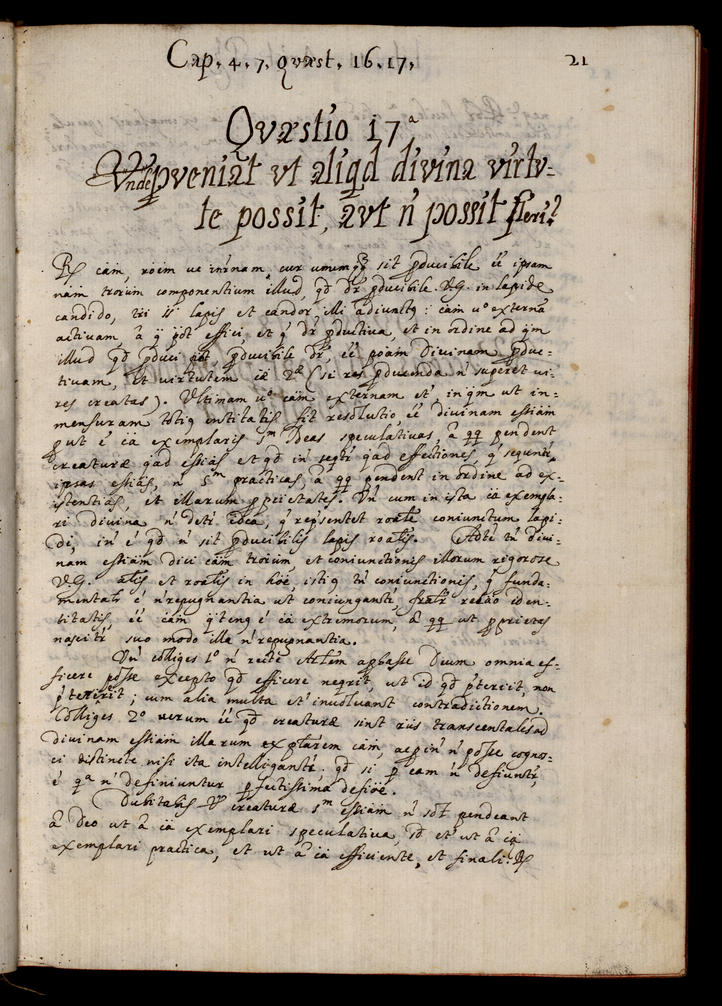 Cap. 4. 7. Quæst. 16. 17. 21
Quæstio 17ª
Vnde pveniat vt aliqd divina virtu-
te possit, aut ñ possit fieri?
R. cãm, roẽm ue inrnam, cur unumqq sit pducibile ẽẽ ipsam
nãm trorum componentium illud, qd dr pducibile. V.G. in lapide
candido, tri st lapis et candor illi adiunctq: cãm uº externã
activam, à q pot effici, et q dr pductiva, et in ordine ad qm
illud qd pduci pot pducibile dr, ẽẽ põam Divinam pduc-
tivam, et virtutem cæ 2æ (si res pducenda ñ superet vi-
res creatas). Vltimam uº cãm externam et in qm ut in-
mensuram totiq entitatis fit resolutio, ẽẽ divinam essiãm
put ẽ cã exemplaris sm Ideas speculativas, à qq pendent
creaturæ qad essiãs et qd in seqtr qad effectiones q sequntr
ipsas essiãs, ñ sm practicas, à qq pendent in ordine ad ex-
istentias, et illarum pprietates. Vñ cum in ista cã exempla-
ri divina ñ detr idea, q repsentet roale coniunctum lapi-
di, inẽ qd ñ sit pducibilis lapis roalis. Adte tñ divi-
nam essiãm dici cãm trorum, et coniunctionis illorum rigorose
V.G. alis et roalis in hoẽ, istiq tñ coniunctionis, q funda-
mentalr ẽ ñ repugnantia ut coniungantr, fralr relão iden-
titatis, ẽẽ cãm qtenq ẽ cã extremorum, à qq ut pprietas
nascitr suo modo illa ñ repugnantia.
Vñ colliges 1º ñ recte Arlem apbasse Deum omnia ef-
ficere posse excepto qd efficere neqrit, ut id qd pteriit, non
pterierit; cum alia multa et involuant contradictionem.
Colliges 2º verum ẽẽ qd creaturæ sint riis transcentales ad
divinam essiãm illarum explarem cãm, ac pin ñ posse cognos-
ci distincte nisi ita intelligantr. qd si p eam ñ definiuntr,
ẽ qa ñ definiuntur pfectissima defiõe.
Dubitabis Vº creaturæ sm essiãm ñ sot pendeant
à Deo ut à cã exemplari speculativa, sd et ut à cã
exemplari practica, et ut à cã efficiente, et finali. R